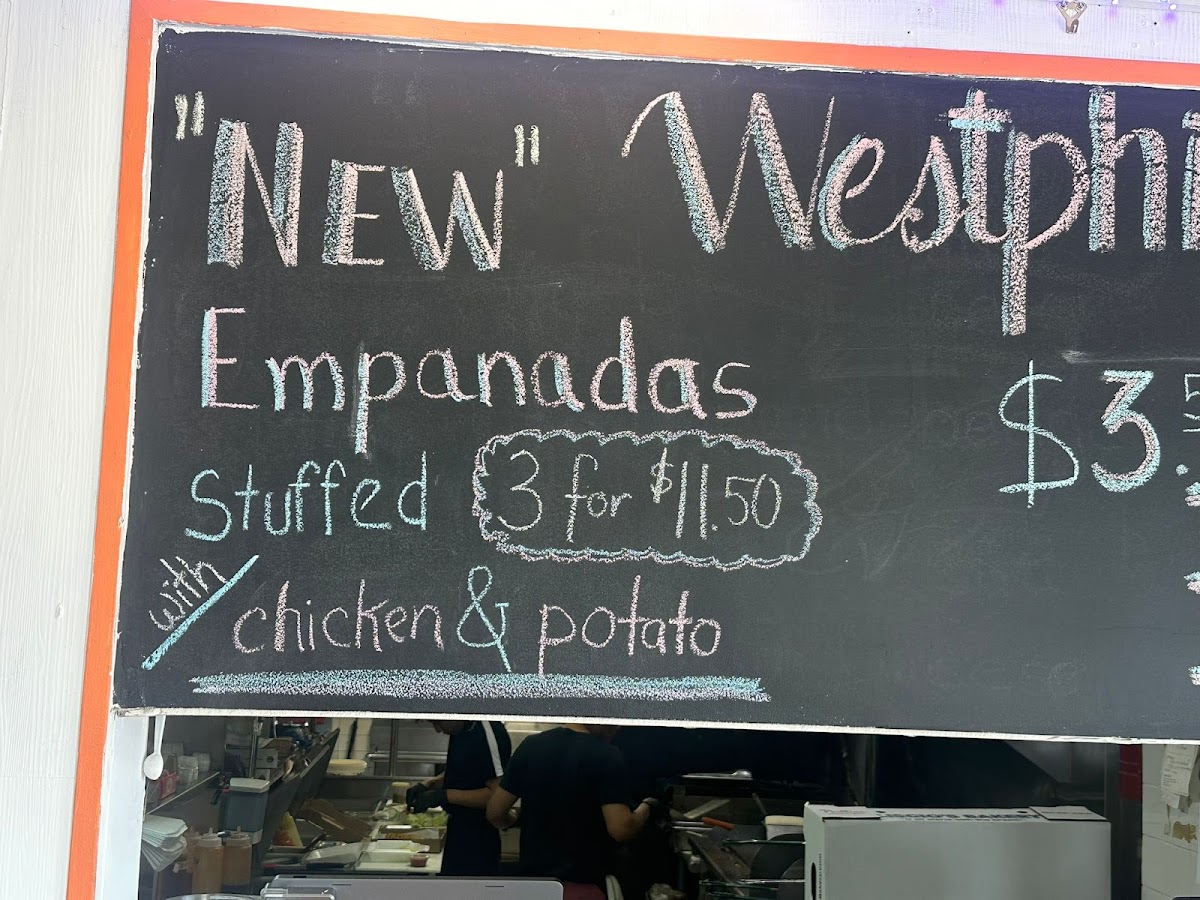 "NEW" Westphi
Empanadas
$3.5
Stuffed 3 for $11.50
with chicken & potato